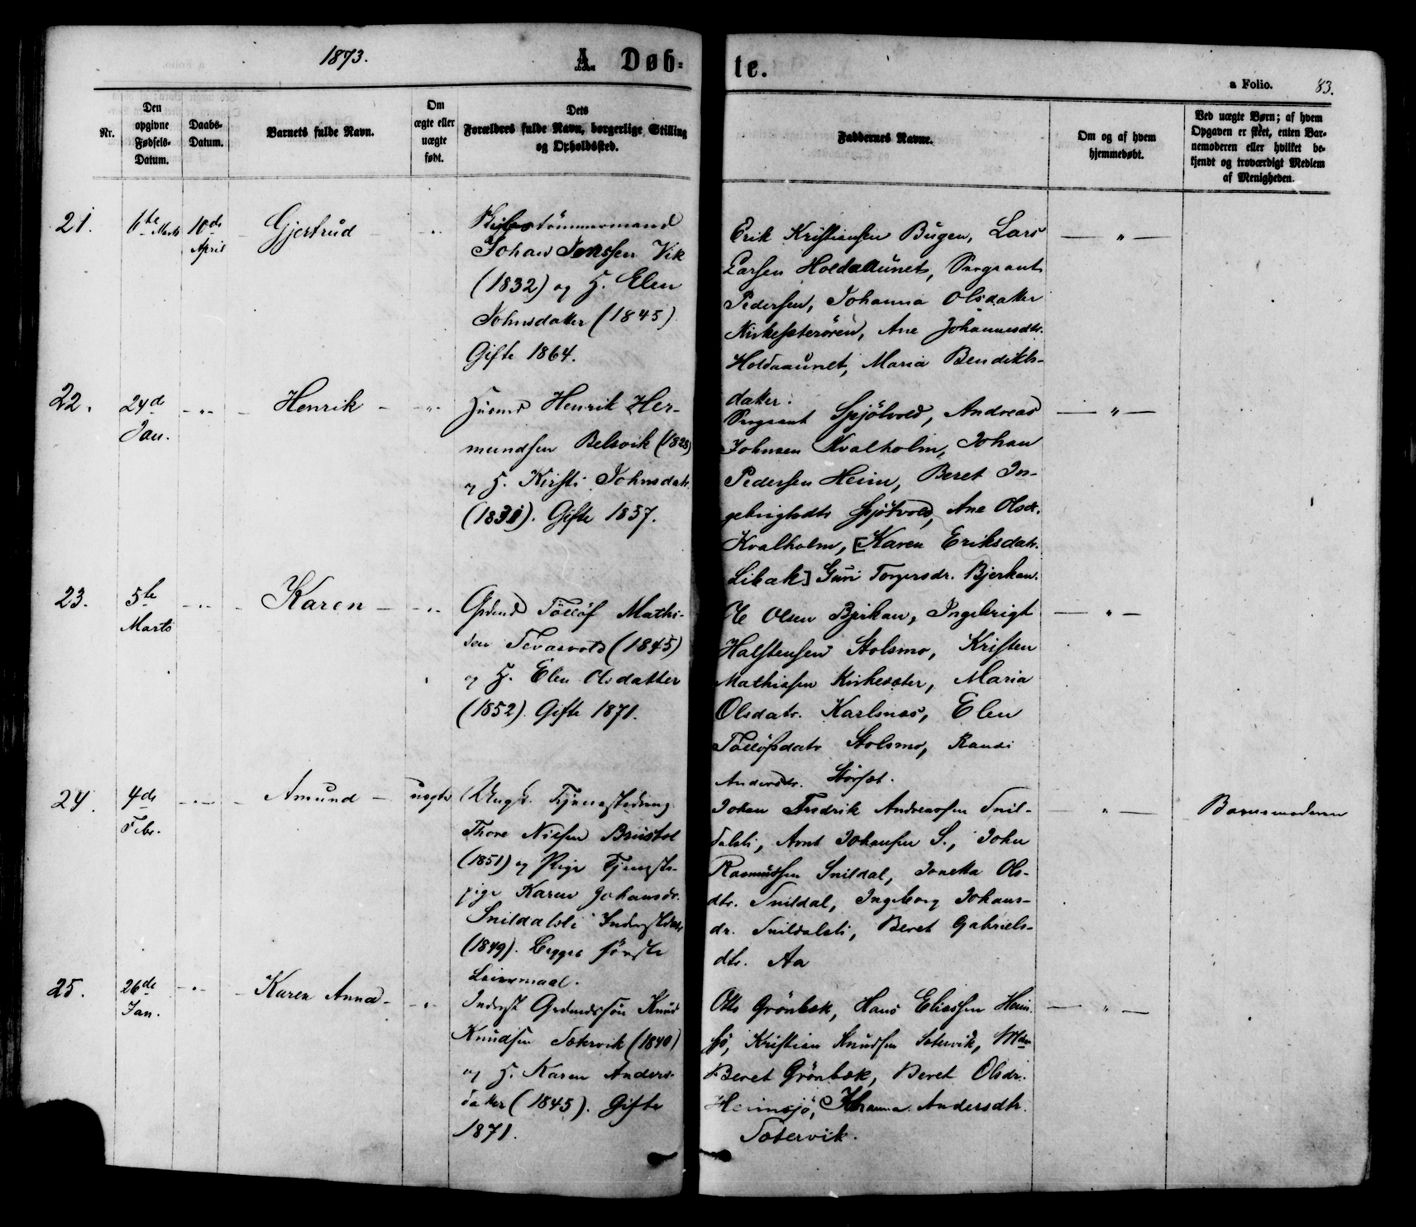 1873.
A. Døb-
te.
a Folio. 83.
Nr.
Den
opgivne
Fødsels-
Datum.
Daabs-
Datum.
Barnets fulde Navn.
Om
ægte eller
uægte
født.
Dets
Forældres fulde Navn, borgerlige Stilling
og Opholdssted.
Faddernes Navne.
Om og af hvem
hjemmedøbt.
Ved uægte Børn; af hvem
Opgaven er skeet, enten Bar-
nemoderen eller hvilket be-
kjendt og troværdigt Medlem
af Menigheden.
21.
Marts
10de
April
Gjertrud
Johan Jenssen Vik
(1832) og H. Elen
Johnsdatter (1845)
Gifte 1864.
Erik Kristiansen Bugen, Lars
Larsen Holdaaunet, Sergeant
Pedersen, Johanna Olsdatter
Kirkesæterøren, Ane Johannesdtr.
Holdaaunet, Maria Bendikts-
datter.
22.
24d
Jan.
Henrik
Husmd Henrik Her-
mundsen Belsvik (1828)
og H. Kirsti Johnsdatr.
(1831). Gifte 1857.
Sergeant Sjøtvold, Andreas
Johnsen Kvalholm, Johan
Pedersen Heim, Beret In-
gebrigtsdtr Sjøtvold, Ane Olsdr.
Kvalholm, [Karen Eriksdatr.
Libak] Guri Torgersdr. Bjerkan.
23.
5te
Marts
Karen
Grdmd Tølløf Mathi-
sen Tevasvold (1845)
og H. Elen Olsdatter
(1852). Gifte 1871.
Olsen Bjerkan, Ingebrigt
Halstensen Stolsmo, Kristen
Mathiasen Kirkesæter, Maria
Olsdatr. Karlsnæs, Elen
Tølløfsdatr Stolsmo, Randi
Andersdr. Størset.
24.
4de
Febr.
Amund
uægte
Ungk. Tjenestedreng
Thore Nilsen
(1851) og Pige Tjeneste-
pige Karen Johansdr.
Snildalsli
(1849). Begges første
Leiermaal.
Johan Fredrik Andreassen Snil-
dalsli, Arnt Johansen S., John
Rasmussen Snildal, Jonetta Ols-
dtr. Snildal, Ingeborg Johans-
dr. Snildalsli, Beret Gabriels-
dtr. Aa
Barnemoderen
25.
26de
Jan.
Karen Anna
Inderst Grdmdssøn Knud
Knudsen Sætervik (1840)
og H. Karen Anders-
datter (1845). Gifte
1871.
Otto Grønbæk, Hans Eliassen Heim-
sjø, Kristian Knudsen Sætervik,
Beret Grønbæk, Beret Olsdr.
Heimsjø, Johanna Andersdtr.
Sætervik.